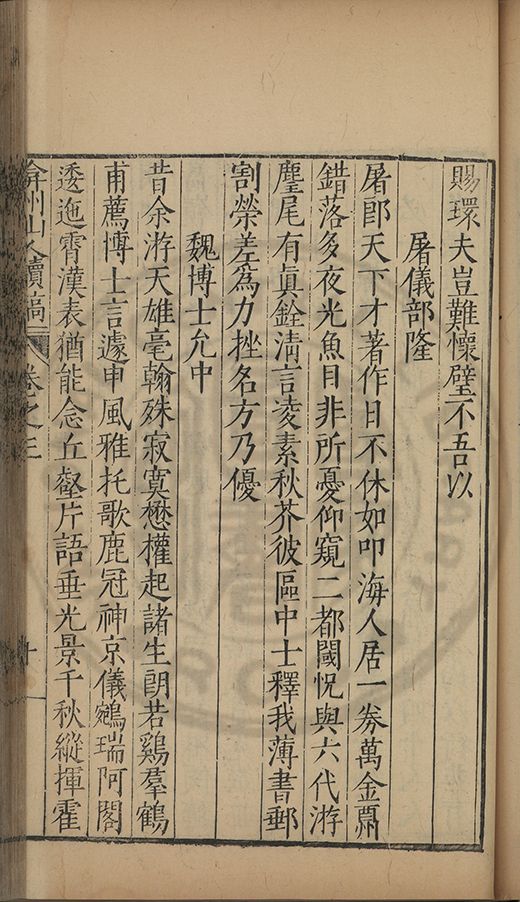 賜環夫豈難懷璧不吾以
屠儀部隆
屠郎天下才著作日不休如叩海人居一券萬金鬻
錯落多夜光魚目非所憂仰窺二都閾怳與六代游
麈尾有眞銓清言凌素秋芥彼區中士釋我薄書郵
割榮差爲力挫名方乃優
魏博士允中
昔余游天雄毫翰殊寂寞懋權起諸生朗若鷄羣鶴
甫薦博士言遽申風雅托歌鹿冠神京儀鵷瑞阿閣
逶迤霄漢表猶能念丘壑片語垂光景千秋縱揮霍
弇州山人續稿
卷之三
十一